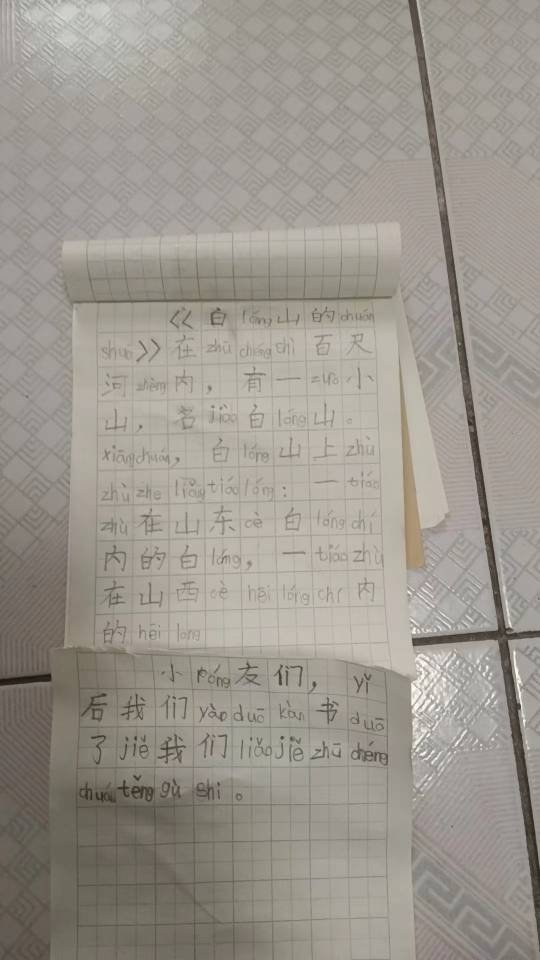 《白lóng山的chuán
shuō》在zhū chéng shì百尺
河zhèn内，有一zuò小
山，名jiào白lóng山。
xiāngchuán，白lóng山上zhù
zhù zhe liǎng tiáo lóng：一tiáo
zhù在山东cè白lóng chí
内的白lóng，一tiáo zhù
在山西cè hēi lóng chí内
的hēi long
小péng友们，yǐ
后我们yào duō kàn书duō
了jiě我们liǎo jiě zhū chéng
chuán těng gù shi。